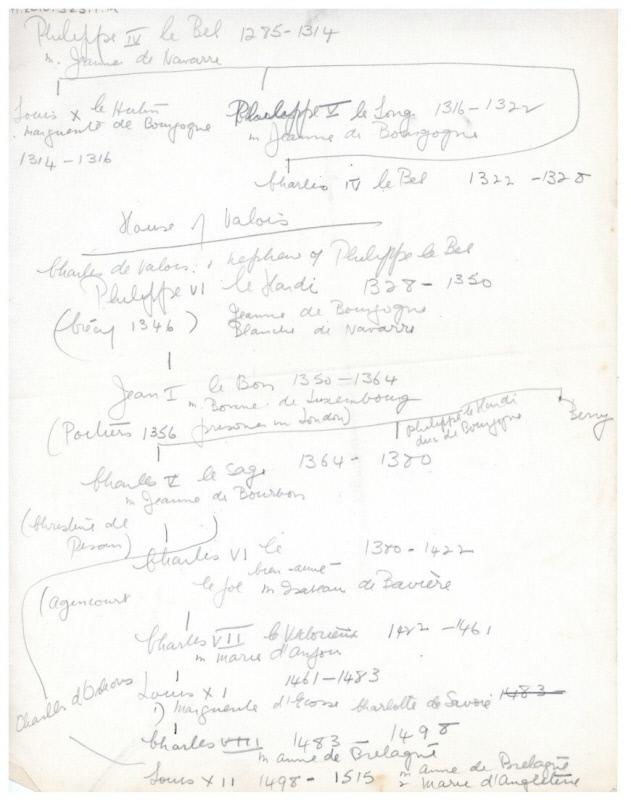 Philippe IV le Bel 1285-1314
m. Jeanne de Navarre
Louis X le Hutin
Marguerite de Bourgogne
1314-1316
Philippe V le Long 1316-1322
m Jeanne de Bourgogne
Charles IV le Bel 1322-1328
House of Valois
Charles de Valois, nephew of Philippe le Bel
Philippe VI le Hardi 1328-1350
(Crécy 1346)
Jeanne de Bourgogne
Blanche de Navarre
Jean I le Bon 1350-1364
m. Bonne de Luxembourg
(Poitiers 1356 prisoner in London)
Philippe le Hardi
duc de Bourgogne
Berry
Charles V le Sage 1364-1380
m Jeanne de Bourbon
(Christine de
Pisan)
Charles VI le 1380-1422
bien-aimé
le fol m Isabeau de Bavière
(Agencourt
Charles VII le Valorieux 1422-1461
m Marie d'Anjou
Charles d'Orleans
Louis XI 1461-1483
1) Marguerite d'Ecosse Charlotte de Savoie 1483
Charles VIII 1483-1498
m Anne de Bretagne
Louis XII 1498-1515 m Anne de Bretagne
2 Marie d'Angleterre